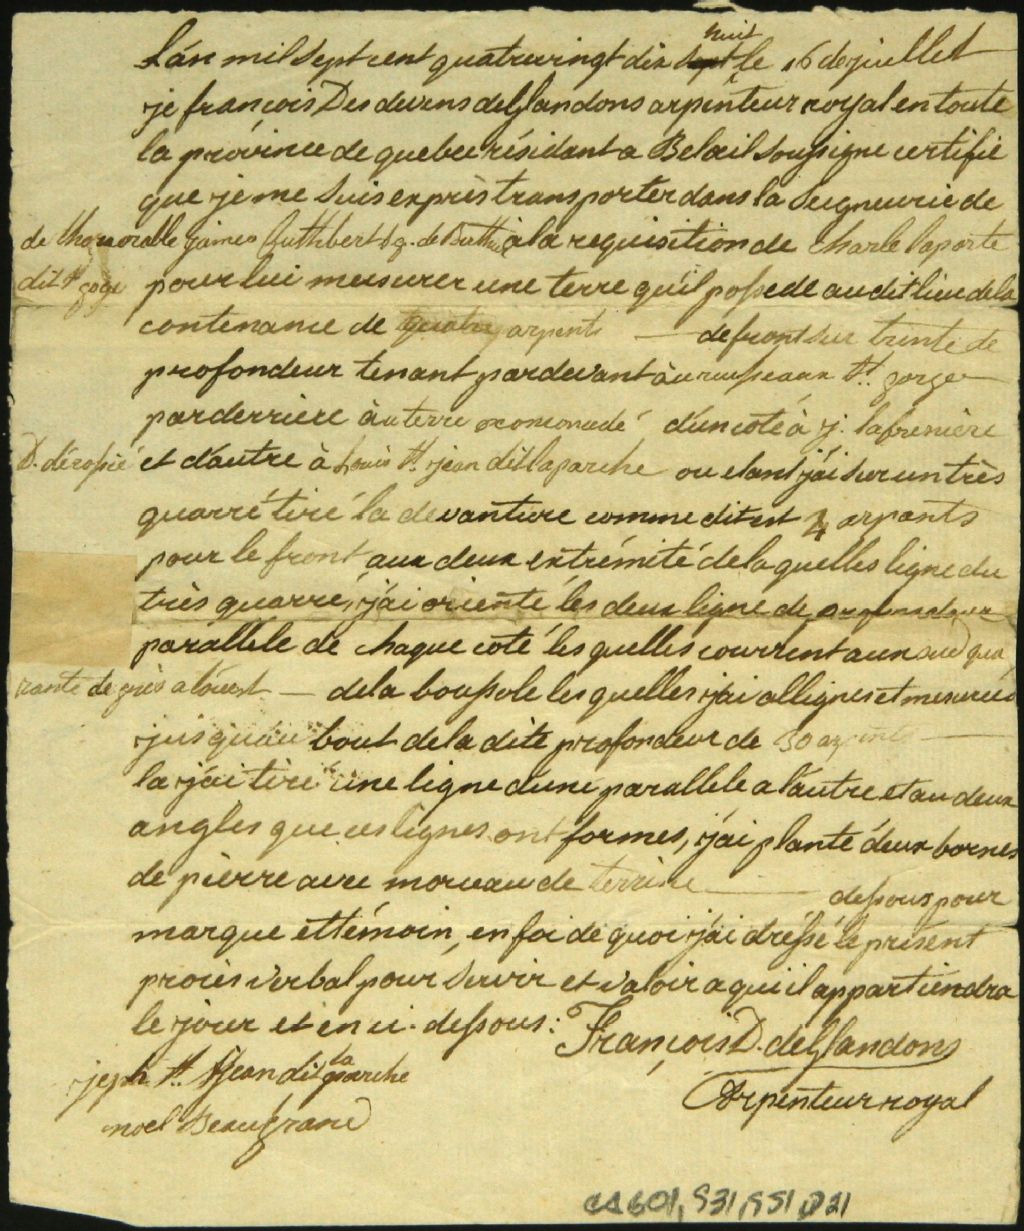 L'an mil sept cent quatrevingt dix huit le 16 de juillet
je françois Desdevens deGlandons arpenteur royal en toute
la province de quebec résidant a Belœil soussigne certifie
que je me suis exprès transporter dans la seigneurie de
de lhonorable james Cuthbert Eq. de Berthier à la requisition de charle laporte
dit St goge pour lui mesurer une terre qu'il possede audit lieu de la
contenance de quatre arpents — de front sur trente de
profondeur tenant pardevant à au ruisseaux St. gorge
parderriere à au terre noconcedé d'un coté à j. lafreniere
et d'autre à Louis St. jean dit laparche ou etant j'ai sur un très
quarré tiré la devanture comme dit est 4 arpants
pour le front aux deux extrémité de laquelles ligne du
très quarré, j'ai orienté les deux ligne de profondeur
parallele de chaque coté les quelles courrent aux sud qua
rante degrés a louest — de la boussole les quelles j'ai allignés et mesurées
jusqu'au bout de la dite profondeur de 30 arpens —
la j'ai tiré une ligne d'une parallele a l'autre et au deux
angles que ces lignes ont formes, j'ai planté deux bornes
de pierre avec morceau de terrine — dessous pour
marque et témoin, en foi de quoi j'ai dréssé le présent
procès verbal pour servir et valoir a qui il appartiendra
le jour et en ci-dessous:
François D. deGlandons
jeph St. jean dit la parche
Arpenteur royal
noel Beaugrand
CA601,S31,SS1,D21